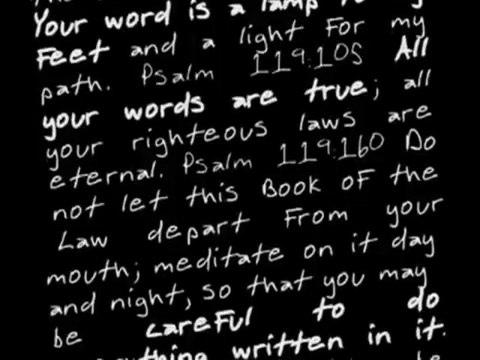 Your word is a lamp
Feet and a light For my
path. Psalm 119:105 All
your words are true; all
your righteous laws are
eternal. Psalm 119:160 Do
not let this Book OF the
Law depart From your
mouth; meditate on it day
and night, so that you may
be careFul to do
written in it.